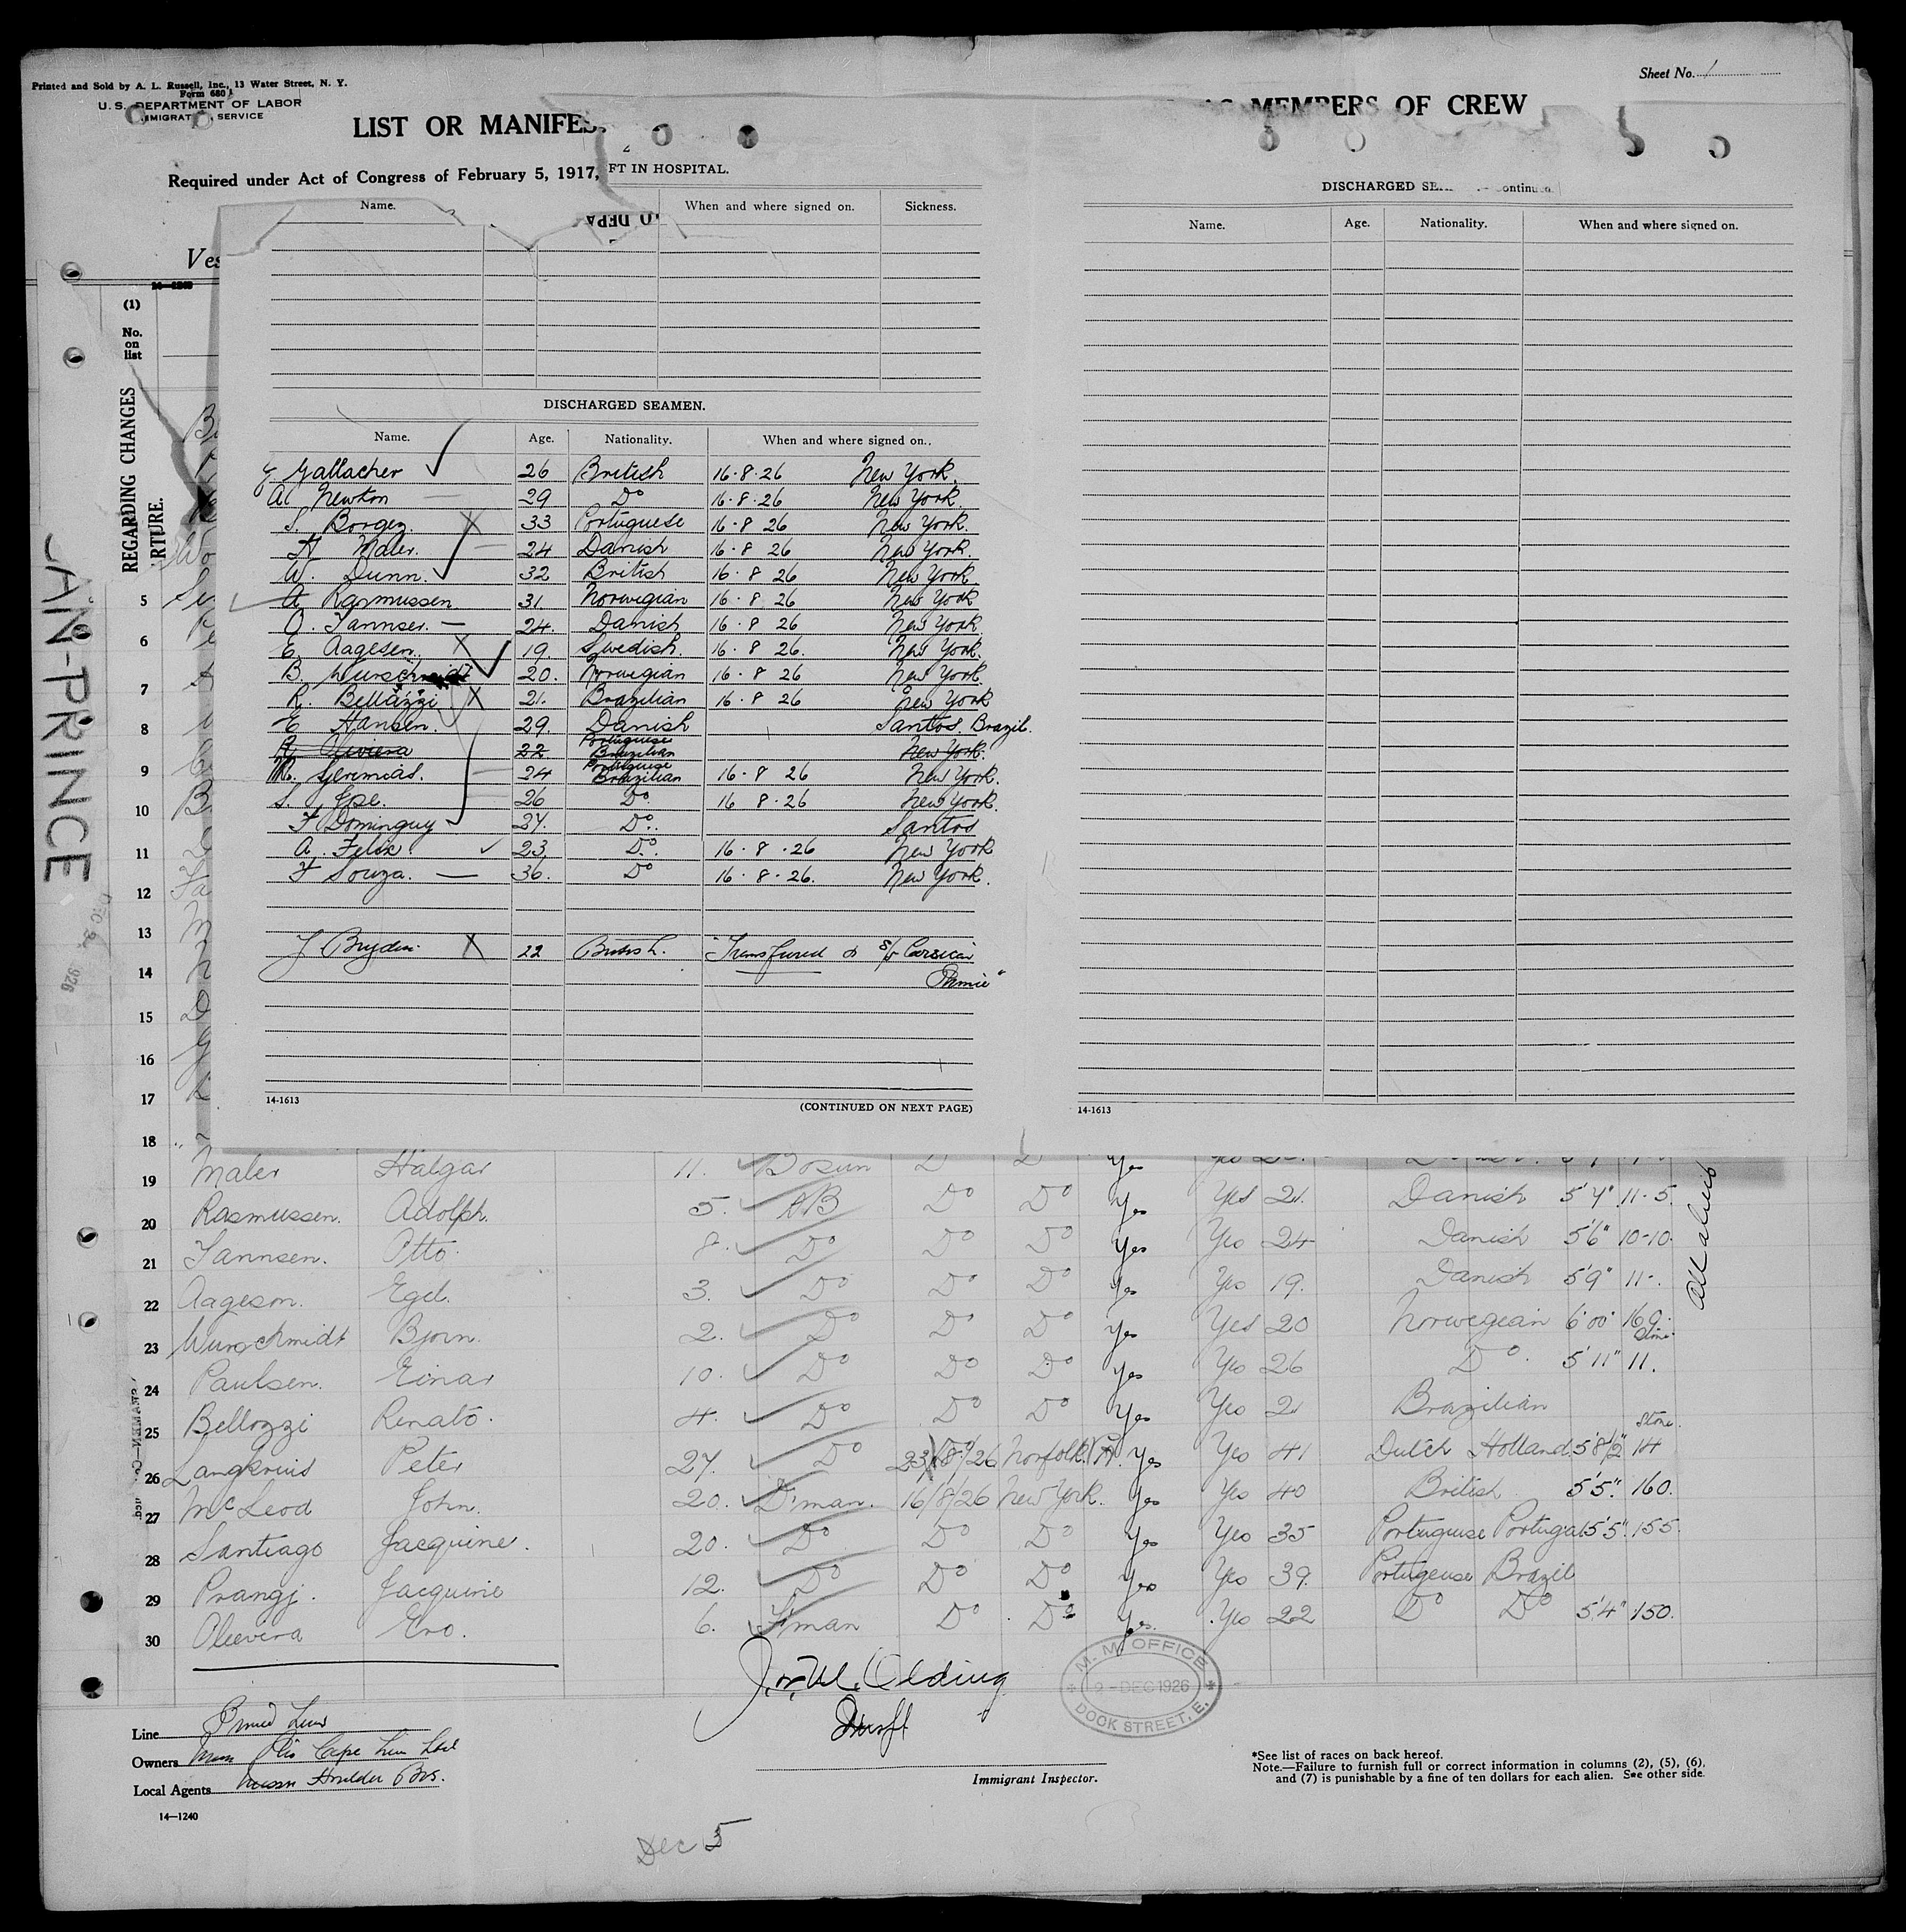 Printed and Sold by A. L. Russell, Inc., 13 Water Street, N. Y.
Form 680
U. S. DEPARTMENT OF LABOR
IMMIGRAT SERVICE
Sheet No. 1
LIST OR MANIFES
AS MEMBERS OF CREW
Required under Act of Congress of February 5, 1917,
FT IN HOSPITAL.
Name. When and where signed on. Sickness.
TO DEPA
Ves
(1)
No. on list
REGARDING CHANGES
ARTURE.
AN-PRINCE
DISCHARGED SEAMEN.
Name. Age. Nationality. When and where signed on.
Gallacher 26 British 16·8·26 New York.
A. Newton 29 Do 16·8·26 New York.
S. Borgez. X 33 Portuguese 16·8 26 New York.
H Maler. 24 Danish 16·8 26 New York.
W. Dunn. 32 British 16·8 26 New York
A Rasmussen 31. Norwegian 16·8 26 New York
O. Jannser. — 24. Danish 16·8 26 New York
E. Aagesen. X 19. Swedish. 16·8 26. New York.
B. Wurschmidt 20. Norwegian 16·8 26 New York.
R. Bellazzi X 21. Brazilian 16·8 26 New York
E Hansen. 29. Danish Santos. Brazil.
22 Portuguese Brazilian New York.
M. Geremias. 24 Portuguese Brazilian 16·8 26 New York.
S. Jose. 26 Do 16 8·26 New York.
F Dominguy 27. Do. Santos
A. Felix. 23, Do. 16·8·26 New York
F Souza. — 36. Do 16·8·26. New York.
J. Bryden. X 22 British. Transfured to S/S Corsican
Prince"
14-1613 (CONTINUED ON NEXT PAGE)
DISCHARGED SE ontinued
Name. Age. Nationality. When and where signed on.
14-1613
5
6
7
8
9
10
11
12
13
14
15
16
17
18
19 Maler Halgar 11. Bosun Do Do Yes Yes
20 Rasmussen. Adolph. 5. AB Do Do Yes Yes 21. Danish 5'4" 11-5.
21 Jannsen. Otto. 8. Do Do Do Yes Yes 24 Danish 5'6" 10-10.
22 Aageson. Egil. 3. Do Do Do Yes Yes 19. Danish 5'9" 11-.
23 Wurschmidt Bjorn. 2. Do Do Do Yes Yes 20 Norwegian 6'00" 169.
24 Paulsen. Einar 10. Do Do Do Yes Yes 26 Do. 5'11" 11. Stone
25 Bellozzi Renato. 4. Do Do Do Yes Yes 21 Brazilian
26 Langkruis Peter 27. Do 23/8/26 Norfolk. Yes Yes 41 Dutch Holland. 5'8½" 14 Stone.
27 McLeod John. 20. D'man. 16/8/26 New York. Yes Yes 40 British 5'5". 160.
28 Santiago Jacquine. 20. Do Do Do Yes Yes 35 Portuguese Portugal 5'5". 155.
29 Prangj. Jacquine 12. Do Do Do Yes Yes 39. Portugeuse Brazil
30 Oleevera Ero. 6. F'man Do Do Yes. Yes 22 Do Do 5'4" 150.
M. M. OFFICE
9-DEC 1926
DOCK STREET, E.
Line Prince Line
Owners Cape Line
Local Agents Messrs Houlder Bros.
Immigrant Inspector.
*See list of races on back hereof.
Note.—Failure to furnish full or correct information in columns (2), (5), (6),
and (7) is punishable by a fine of ten dollars for each alien. See other side.
14—1240
Dec 5